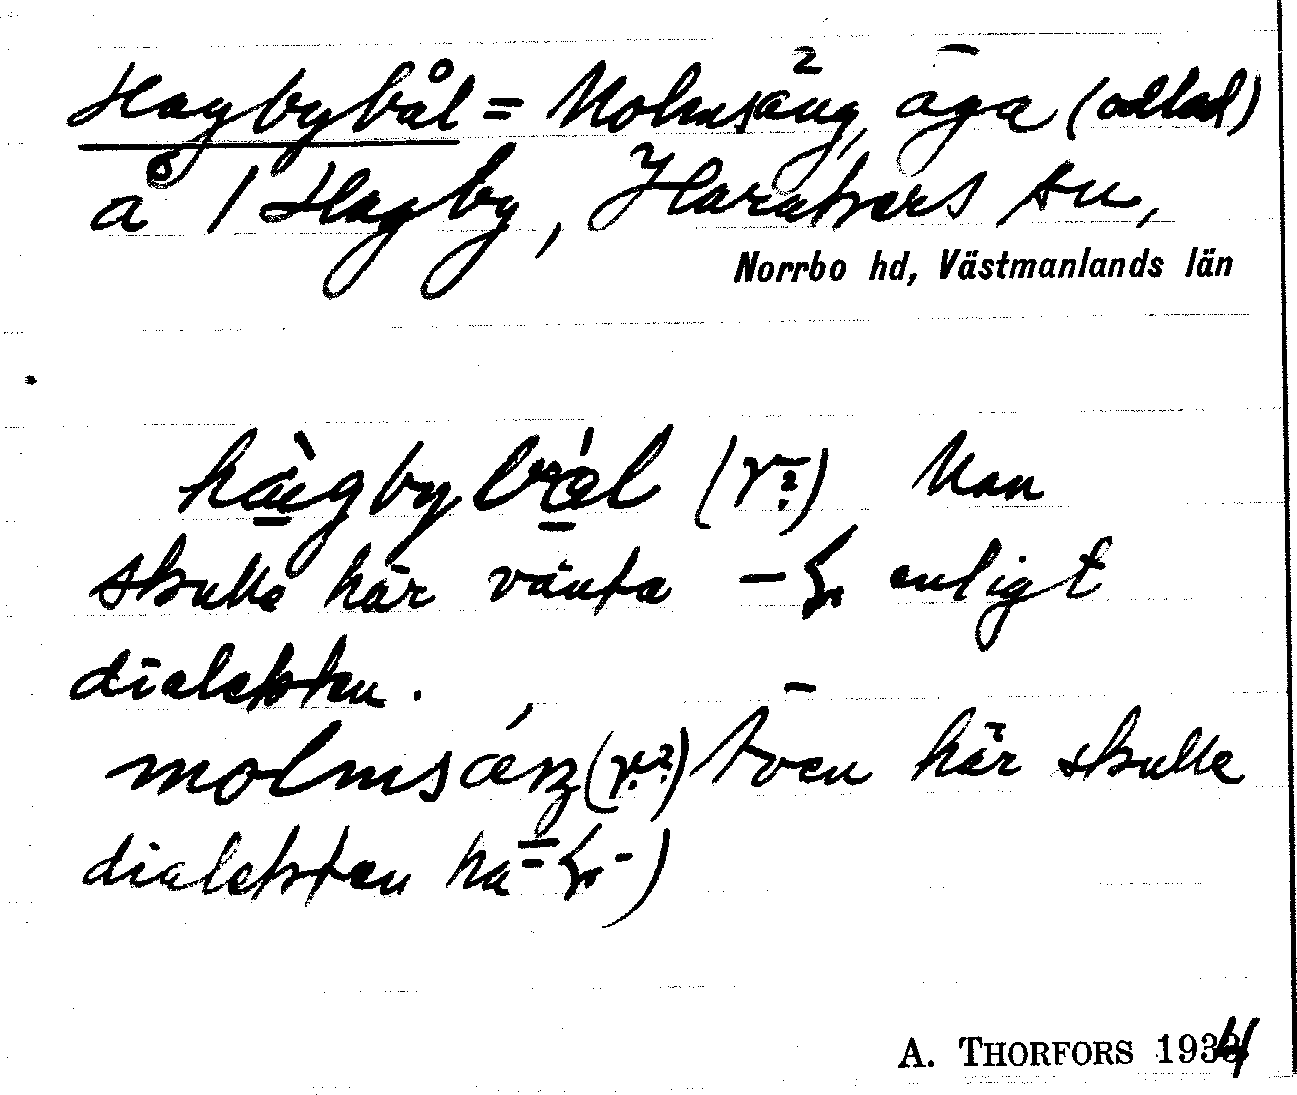 Hagbybål = Molmsäng, äga (odlad)
å 1 Hagby, Harakers sn,
Norrbo hd, Västmanlands län
hàgbybál (r?) Man
skulle här vänta - enligt
dialekten.
molmsáŋ (r?) Även här skulle
dialekten ha
A. THORFORS 1934